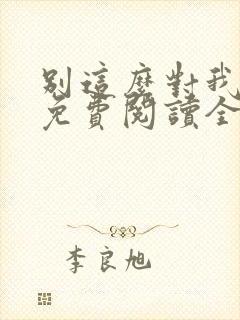 別這麼對我
免費閱讀全
李良旭